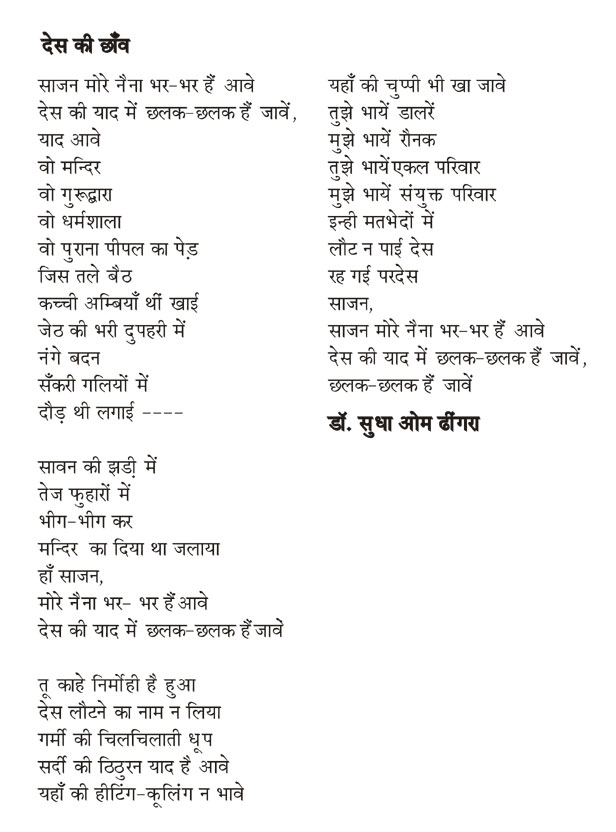 देस की छाँव
साजन मोरे नैना भर-भर हैं आवे
देस की याद में छलक-छलक हैं जावें,
याद आवे
वो मन्दिर
वो गुरूद्वारा
वो धर्मशाला
वो पुराना पीपल का पेड़
जिस तले बैठ
कच्ची अम्बियाँ थीं खाई
जेठ की भरी दुपहरी में
नंगे बदन
सँकरी गलियों में
दौड़ थी लगाई ----
सावन की झडी़ में
तेज फुहारों में
भीग-भीग कर
मन्दिर का दिया था जलाया
हाँ साजन,
मोरे नैना भर- भर हैं आवे
देस की याद में छलक-छलक हैं जावें
तू काहे निर्मोही है हुआ
देस लौटने का नाम न लिया
गर्मी की चिलचिलाती धूप
सर्दी की ठिठुरन याद है आवे
यहाँ की हीटिंग-कूलिंग न भावे
यहाँ की चुप्पी भी खा जावे
तुझे भायें डालरें
मुझे भायें रौनक
तुझे भायें एकल परिवार
मुझे भायें संयुक्त परिवार
इन्ही मतभेदों में
लौट न पाई देस
रह गई परदेस
साजन,
साजन मोरे नैना भर-भर हैं आवे
देस की याद में छलक-छलक हैं जावें,
छलक-छलक हैं जावें
डॉ. सुधा ओम ढींगरा